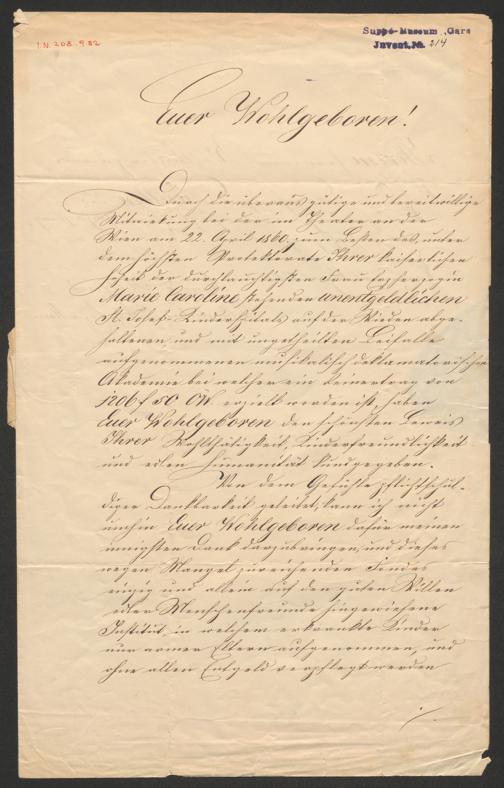 I.N. 208.982
Suppé-Museum, Gars
Invent. No. 214
Euer Wohlgeboren!
Durch die überaus gütige und bereitwillige
Mitwirkung bei der im Theater an der
Wien am 22. April 1860 zum Besten des, unter
dem höchsten Protektorate Ihrer kaiserlichen
Hoheit der durchlauchtigsten Frau Erzherzogin
Marie Caroline stehenden unentgeldlichen
St. Josef-Kinderspitals auf der Wieden abge-
haltenen und mit ungetheilten Beifalle
aufgenommenen musikalisch deklamatorischen
Akademie bei welcher ein Reinertrag von
1206 f 50 ÖW. erzielt worden ist, haben
Euer Wohlgeboren den schönsten Beweis
Ihrer Wohlthätigkeit, Kinderfreundlichkeit
und edlen Humanität kundgegeben.
Von dem Gefühle pflichtschul-
diger Dankbarkeit geleitet, kann ich nicht
umhin Euer Wohlgeboren dafür meinen
innigsten Dank darzubringen, und dieses
wegen Mangel zureichenden Fondes
einzig und allein auf den guten Willen
edler Menschenfreunde hingewiesene
Institut, in welchem erkrankte Kinder
nur armer Eltern aufgenommen, und
ohne allen Entgeld verpflegt werden